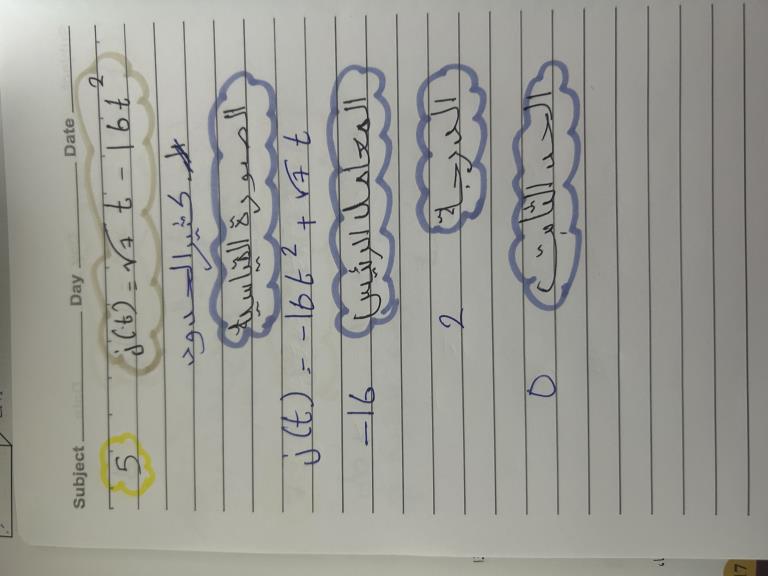 Subject Day Date
5 j(t) = √7 t − 16t²
كثير الحدود
الصورة القياسية
j(t) = −16t² + √7 t
المعامل الرئيس
−16
الدرجة
2
الحد الثابت
0
17